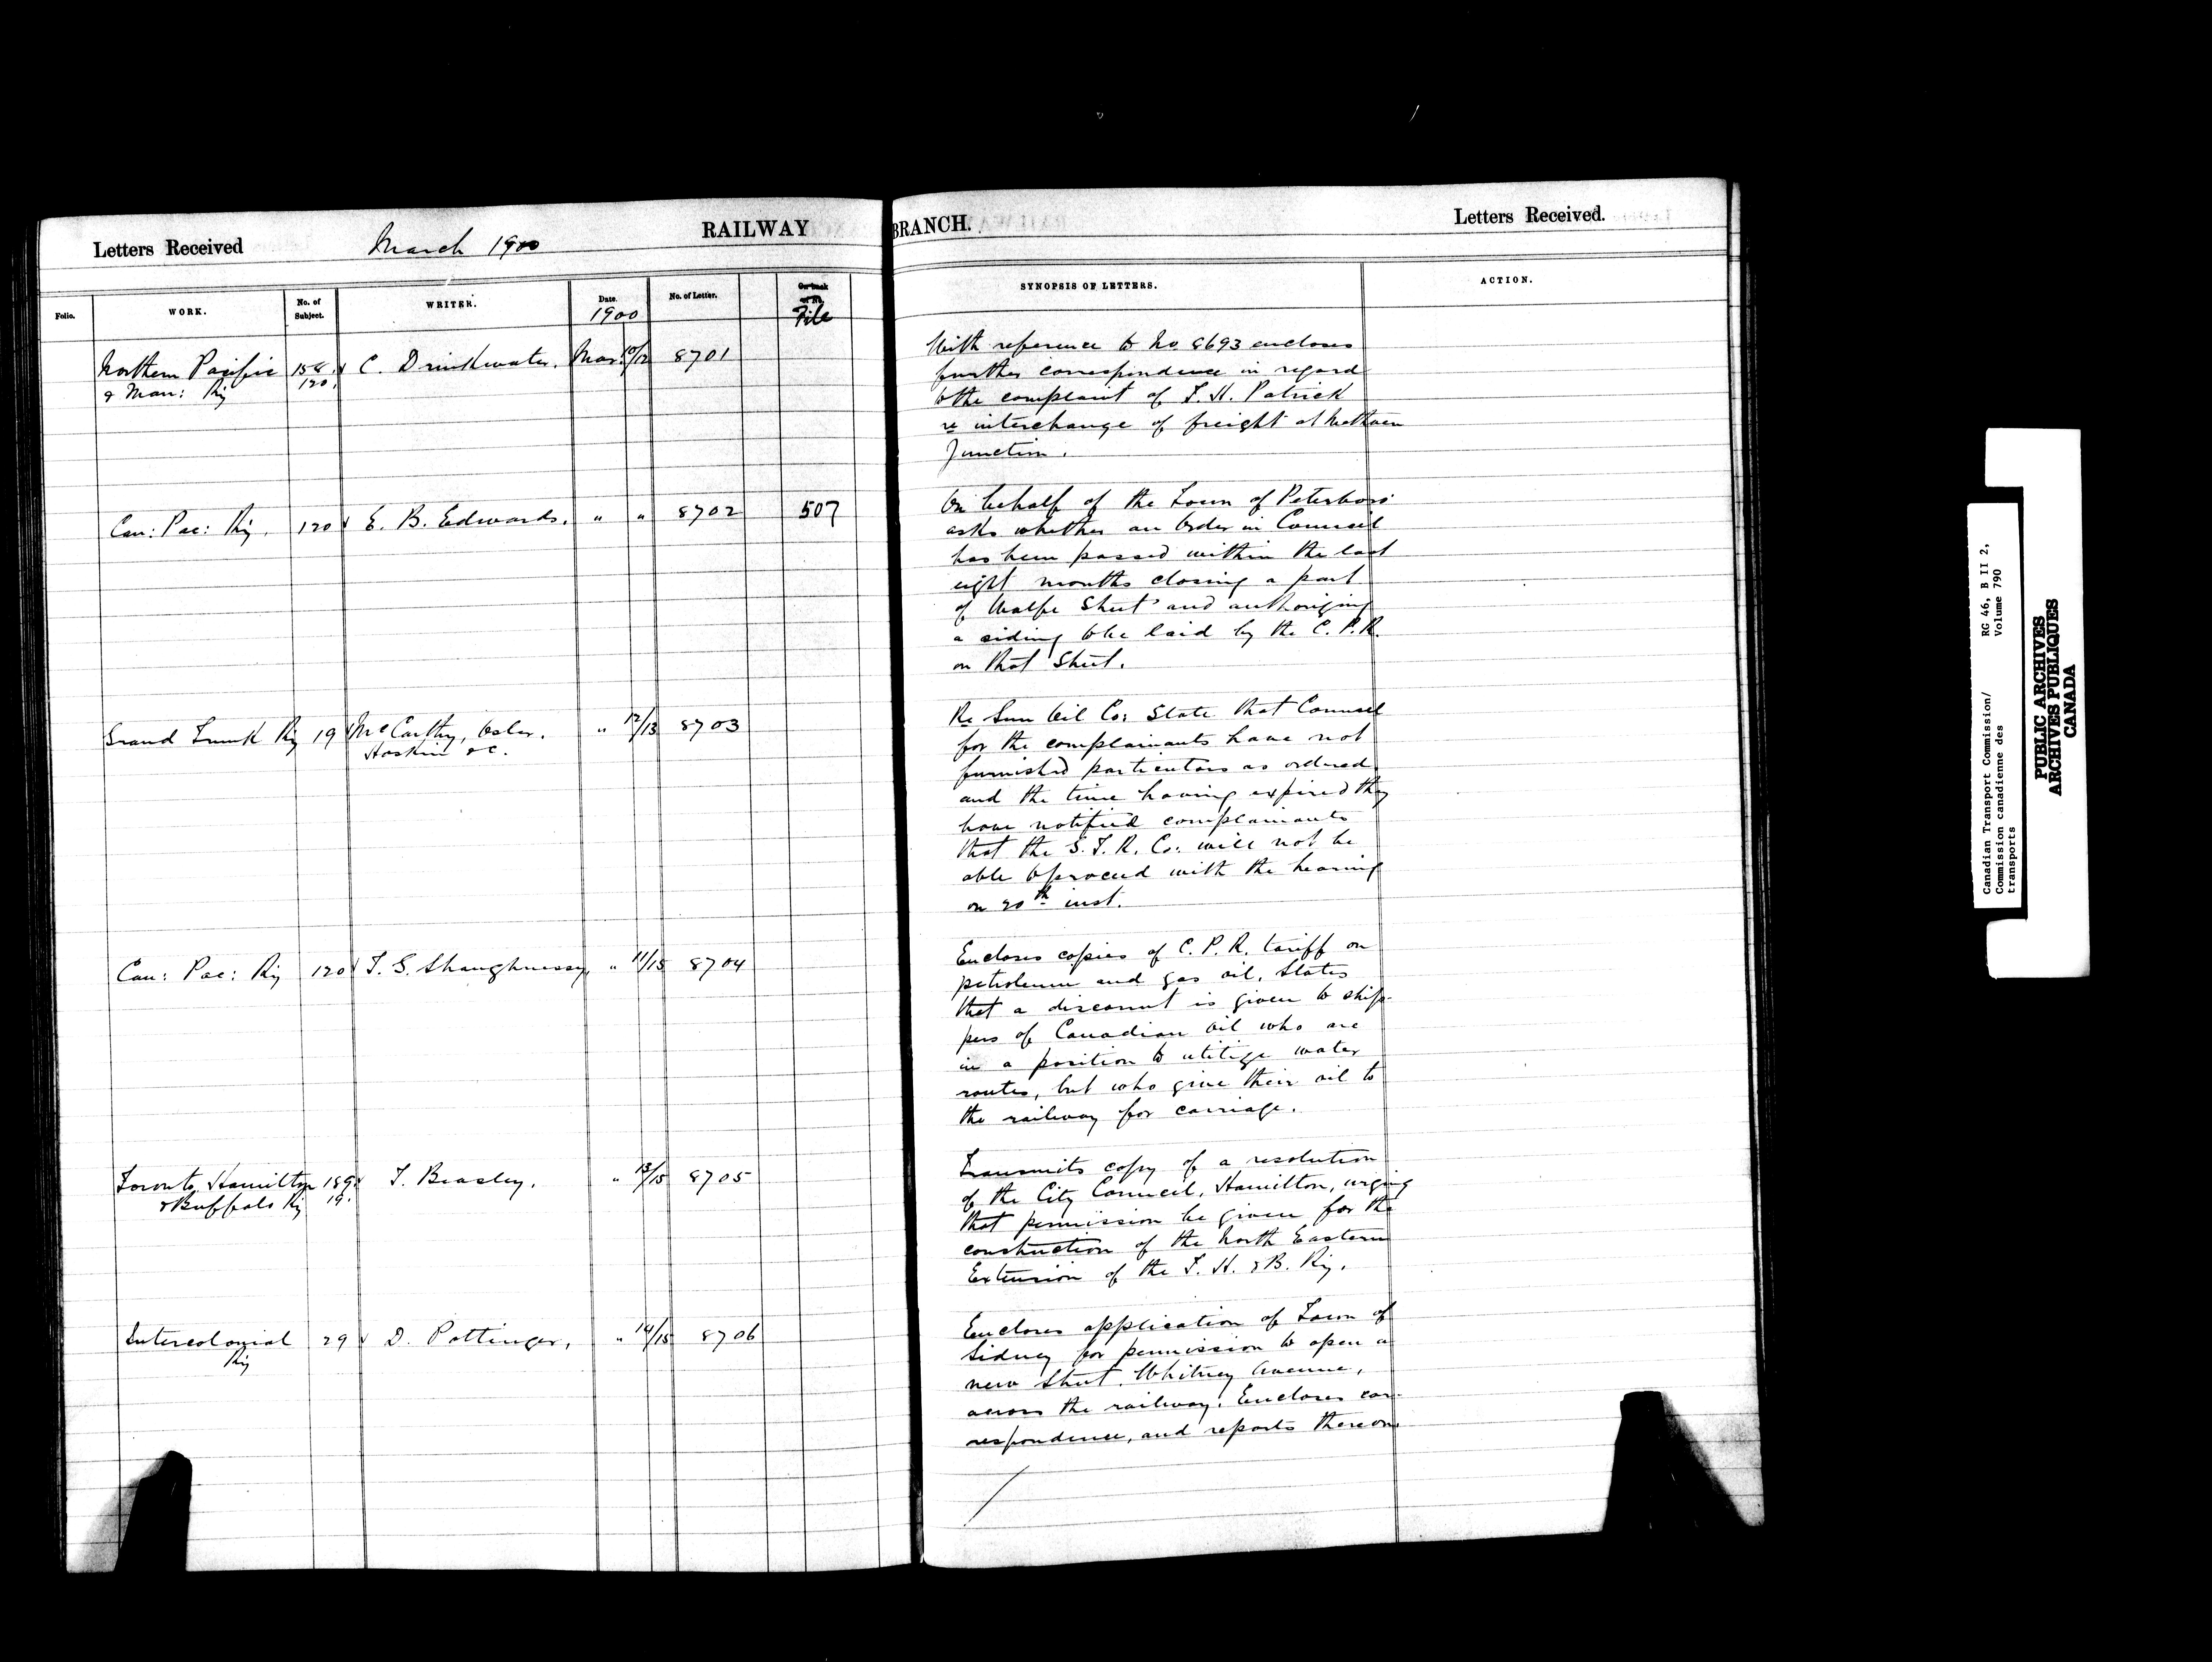 Letters Received
March 1900
RAILWAY
BRANCH.
Letters Received.
Folio.
WORK.
No. of Subject.
WRITER.
Date.
1900
No. of Letter.
File
SYNOPSIS OF LETTERS.
ACTION.
Northern Pacific
& Man: Ry
120.
C. Drinkwater.
Mar. 10/12
8701
With reference to No. 8693 encloses
further correspondence in regard
to the complaint of T. H. Patrick
re interchange of freight at
Junction.
Can: Pac: Ry.
120
E. B. Edwards.
" "
8702
507
On behalf of the Town of Peterboro'
asks whether an Order in Council
has been passed within the last
eight months closing a part
of Wolfe Street and authorizing
a siding to be laid by the C. P. R.
on that Street.
Grand Trunk Ry
19
McCarthy, Osler,
Hoskin & C.
" 12/13
8703
Re Sun Oil Co: State that Counsel
for the complainants have not
furnished particulars as ordered
and the time having expired they
have notified complainants
that the G. T. R. Co: will not be
able to proceed with the hearing
on 20th inst.
Can: Pac: Ry
120
T. G. Shaughnessy,
" 11/15
8704
Encloses copies of C. P. R. tariff on
petroleum and gas oil. States
that a discount is given to ship-
pers of Canadian oil who are
in a position to utilize water
routes, but who give their oil to
the railway for carriage.
Toronto, Hamilton
& Buffalo Ry
189.
19.
T. Beasley.
" 13/15
8705
Transmits copy of a resolution
of the City Council, Hamilton, urging
that permission be given for the
construction of the North Eastern
Extension of the T. H. & B. Ry.
Intercolonial
Ry
29
D. Pottinger,
" 14/15
8706
Encloses application of Town of
Sidney for permission to open a
new Street. Whitney Avenue,
across the railway. Encloses cor-
respondence, and reports thereon
Canadian Transport Commission/
Commission canadienne des
transports
RG 46, B II 2,
Volume 790
PUBLIC ARCHIVES
ARCHIVES PUBLIQUES
CANADA